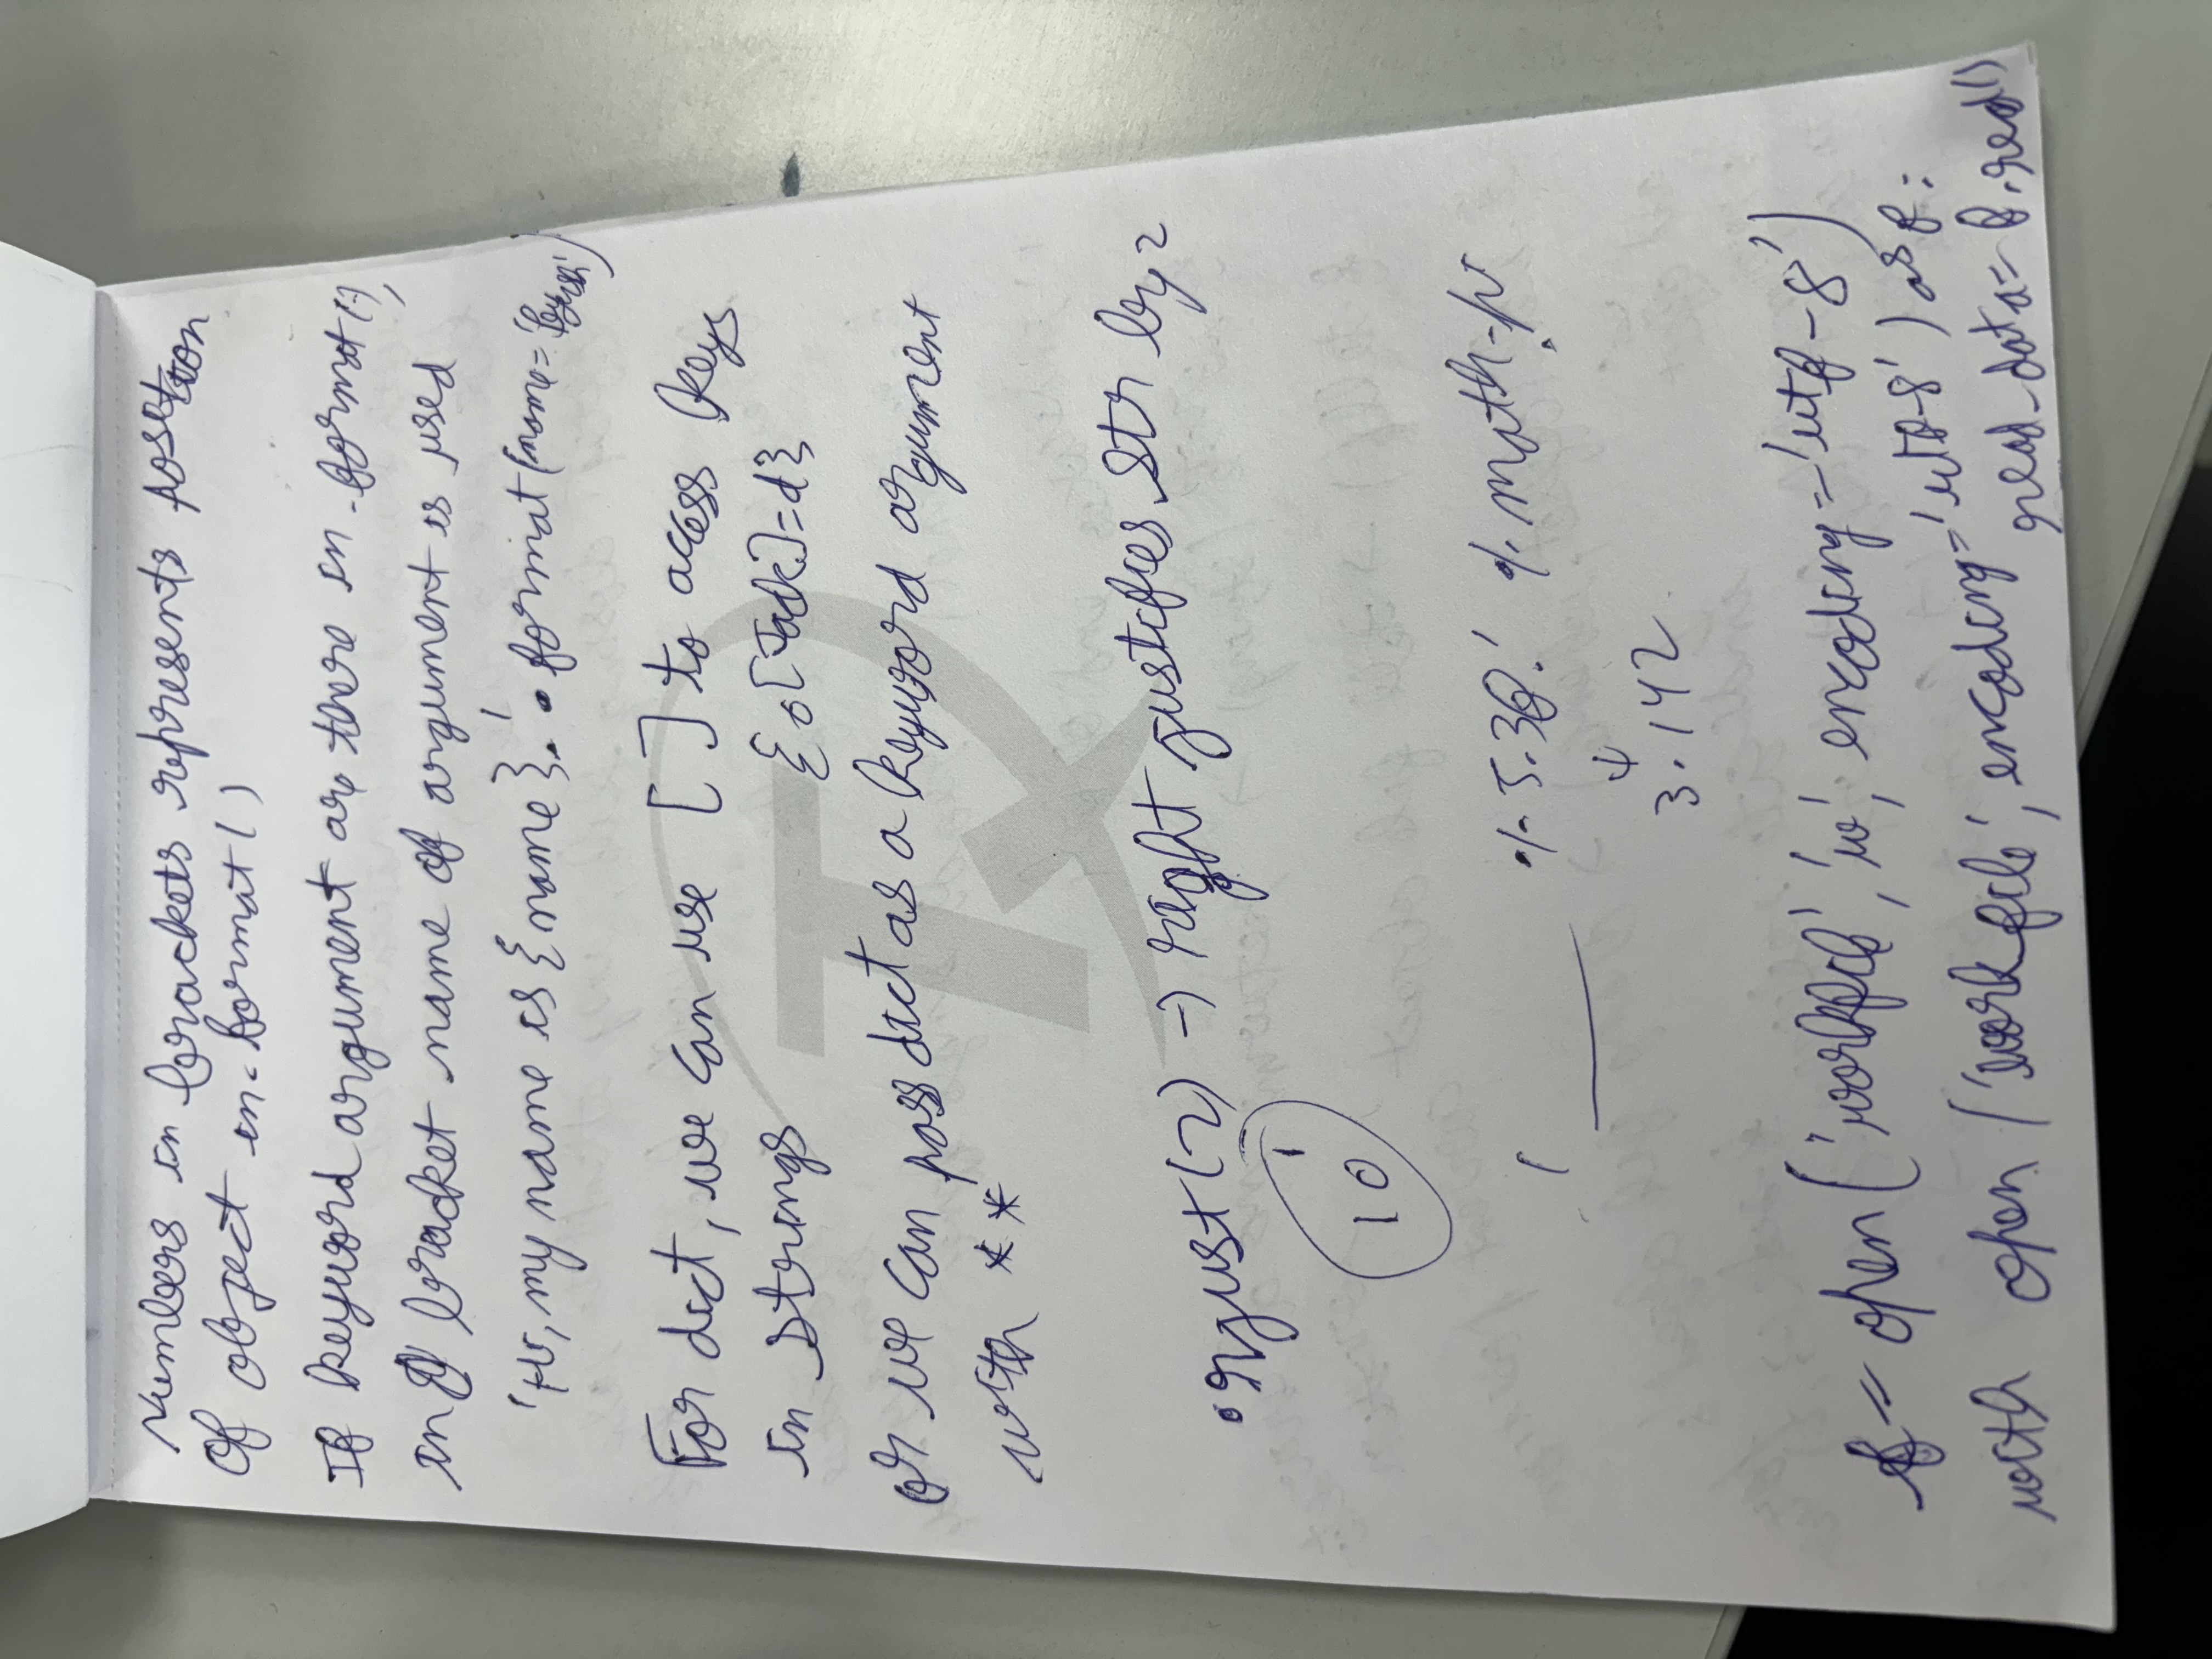 Numbers in brackets represents position
of object in .format()
If keyword argument are there in .format(),
in bracket name of argument is used
'Hi, my name is {name}.'.format(name='Piyush')
For dict, we can use [ ] to access keys
in strings {0[Jack]=d}
or we can pass dict as a keyword argument
with **
.rjust(2) → right justifies str by 2
1
10
' ___ %5.3f.' % math.pi
↓
3.142
f = open('workfile', 'w', encoding='utf-8')
with open('workfile', encoding='utf-8') as f:
read_data = f.read()
TX